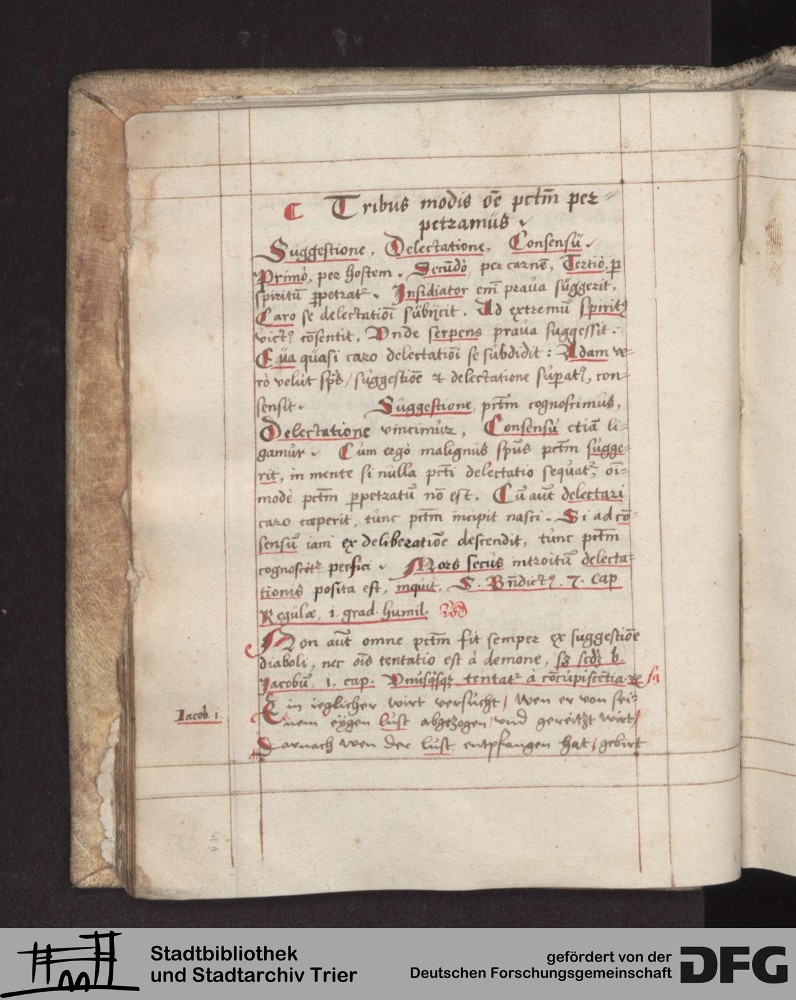 Tribus modis oē pctm̄ per=
petramus.
Suggestione, Delectatione, Consensu.
Primo, per hostem. Secūdo, per carnē, Tertio, p
spiritū ppetrat᷑. Insidiator em̄ praua suggerit,
Caro se delectatiōi subijcit. Ad extremū spirit⁹
vict⁹ cōsentit, Vnde serpens praua suggessit.
Eua quasi caro delectatiōi se subdidit: Adam ve=
ro velut sp̄s / suggestiōe & delectatione supat⁹, con=
sensit. Suggestione, pctm̄ cognoscimus,
Delectatione vincimur, Consensu etiā li=
gamur. Cum ergo malignus sp̄us pctm̄ sugge=
rit, in mente si nulla pcti delectatio sequat᷑, oī=
mode pctm̄ ppetratū nō est. Cū aut delectari
caro cœperit, tunc pctm̄ incipit nasci. Si ad cō=
sensū iam ex deliberatiōe descendit, tunc pctm̄
cognoscit᷑ perfici. Mors secus introitū delecta=
tionis posita est, inquit, S. Bn̄dict⁹. 7. cap
Regulæ, 1. grad. humil.
Non aut omne pctm̄ fit semper ex suggestiōe
diaboli, nec oīs tentatio est à demone, sꝫ scdꝫ b.
Jacobū, 1. cap. Vnusqsqꝫ tentat᷑ à cōcupiscētia
Ein ieglicher wirt versucht / wen er von sei=
nem eygen lust abgezogen / vnd gereitzt wirt /
Darnach wen der lust entpfangen hat / gebirt
Iacob. 1.
Stadtbibliothek
und Stadtarchiv Trier
gefördert von der
Deutschen Forschungsgemeinschaft
DFG